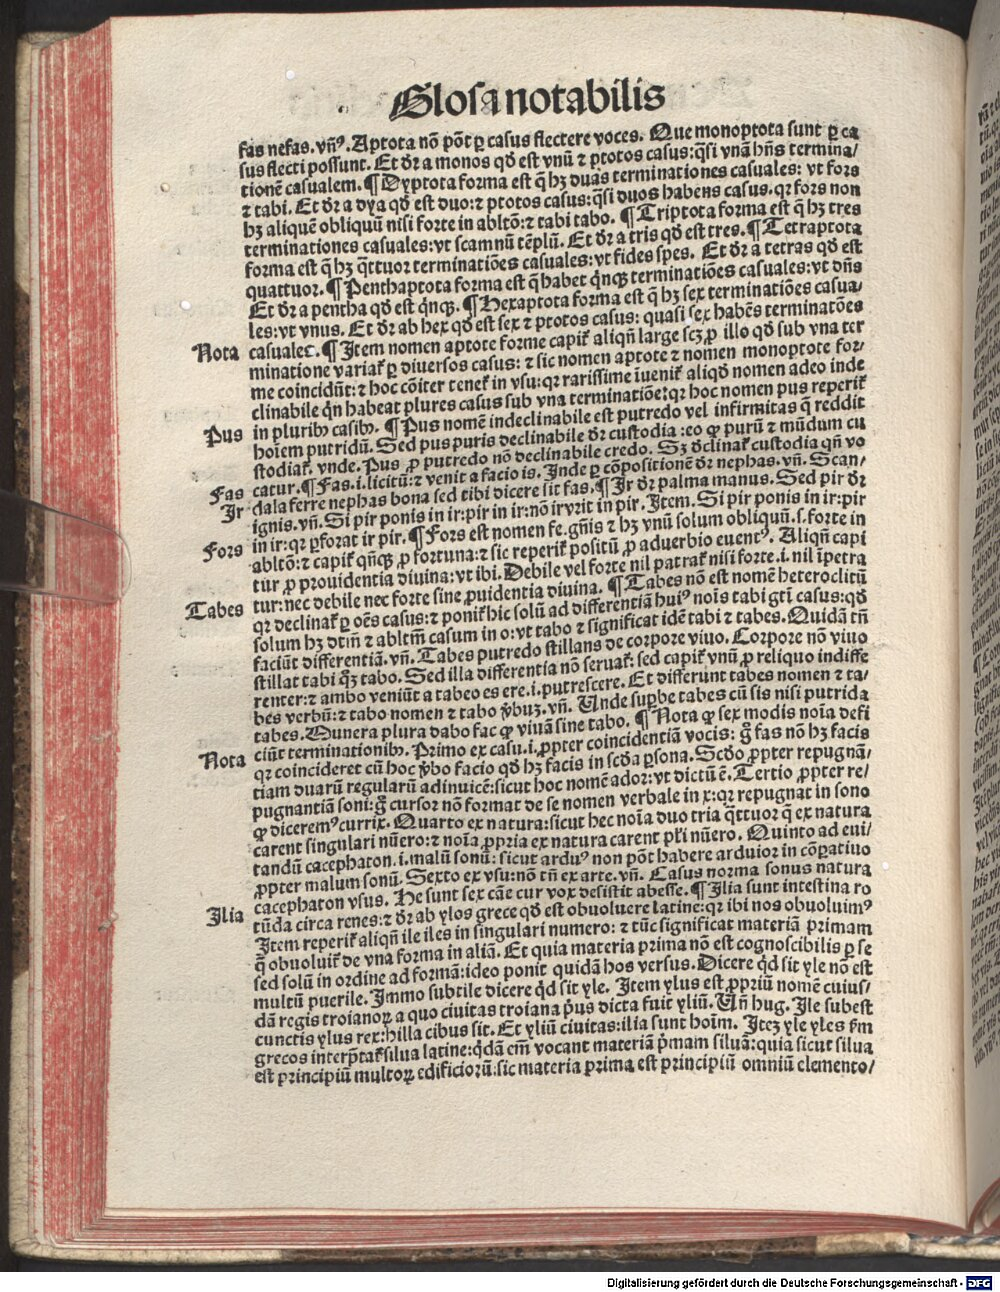 Glosa notabilis
fas nefas. vñꝰ. Aptota nō pōt ꝑ casus flectere voces. Que monoptota sunt ꝑ ca
sus flecti possunt. Et dr̄ a monos qd̄ est vnū ⁊ ptotos casus: q̄si vnā hn̄s termina/
tionē casualem. ¶ Dyptota forma est q̄ hꝫ duas terminationes casuales: vt fors
⁊ tabi. Et dr̄ a dya qd̄ est duo: ⁊ ptotos casus: q̄si duos habens casus. qr fors non
hꝫ aliquē obliquū nisi forte in abltō: ⁊ tabi tabo. ¶ Triptota forma est q̄ hꝫ tres
terminationes casuales: vt scamnū tēplū. Et dr̄ a tris qd̄ est tres. ¶ Tetraptota
forma est q̄ hꝫ q̄ttuor terminatiōes casuales: vt fides spes. Et dr̄ a tetras qd̄ est
quattuor. ¶ Penthaptota forma est q̄ habet qn̄qꝫ terminatiōes casuales: vt dn̄s
Et dr̄ a pentha qd̄ est qn̄qꝫ. ¶ Hexaptota forma est q̄ hꝫ sex terminatiōes casua/
les: vt vnus. Et dr̄ ab hex qd̄ est sex ⁊ ptotos casus: quasi sex habēs terminatōes
Nota casuales. ¶ Item nomen aptote forme capit᷑ aliqn̄ large scꝫ ꝓ illo qd̄ sub vna ter
minatione variat᷑ ꝑ diuersos casus: ⁊ sic nomen aptote ⁊ nomen monoptote for/
me coincidūt: ⁊ hoc cōiter tenet᷑ in vsu: qr rarissime īuenit᷑ aliqd̄ nomen adeo inde
clinabile qn̄ habeat plures casus sub vna terminatiōe: qr hoc nomen pus reperit᷑
Pus in pluribꝫ casibꝫ. ¶ Pus nomē indeclinabile est putredo vel infirmitas q̄ reddit
hoīem putridū. Sed pus puris declinabile dr̄ custodia: eo ꝙ purū ⁊ mūdum cu
stodiat᷑. vnde. Pus ꝓ putredo nō declinabile credo. Sꝫ dclinat᷑ custodia qn̄ vo
Fas catur. ¶ Fas .i. licitū: ⁊ venit a facio is. Inde ꝑ cōpositionē dr̄ nephas. vn̄. Scan/
Ir dala ferre nephas bona sed tibi dicere sit fas. ¶ Ir dr̄ palma manus. Sed pir dr̄
ignis. vn̄. Si pir ponis in ir: pir in ir: nō irurit in pir. Item. Si pir ponis in ir: pir
Fors in ir: qr ꝑforat ir pir. ¶ Fors est nomen fe. gn̄is ⁊ hꝫ vnū solum obliquū .s. forte in
abltō: ⁊ capit᷑ qn̄qꝫ ꝓ fortuna: ⁊ sic reperit᷑ positū ꝓ aduerbio euentꝰ. Aliqn̄ capi
tur ꝓ prouidentia diuina: vt ibi. Debile vel forte nil patrat᷑ nisi forte .i. nil īpetra
Tabes tur: nec debile nec forte sine ꝓuidentia diuina. ¶ Tabes nō est nomē heteroclitū
qr declinat᷑ ꝑ oēs casus: ⁊ ponit᷑ hic solū ad differentiā huiꝰ noīs tabi gtī casus: qd̄
solum hꝫ dtm̄ ⁊ abltm̄ casum in o: vt tabo ⁊ significat idē tabi ⁊ tabes. Quidā tn̄
faciūt differentiā. vn̄. Tabes putredo stillans de corpore viuo. Corpore nō viuo
stillat tabi qꝫ tabo. Sed illa differentia nō seruat᷑: sed capit᷑ vnū ꝓ reliquo indiffe
renter: ⁊ ambo veniūt a tabeo es ere .i. putrescere. Et differunt tabes nomen ⁊ ta/
bes verbū: ⁊ tabo nomen ⁊ tabo v̄buꝫ. vn̄. Unde suꝑbe tabes cū sis nisi putrida
tabes. Munera plura dabo fac ꝙ viuā sine tabo. ¶ Nota ꝙ sex modis noīa defi
Nota ciūt terminationibꝫ. Primo ex casu .i. ꝓpter coincidentiā vocis: g̊ fas nō hꝫ facis
qr coincideret cū hoc v̄bo facio qd̄ hꝫ facis in scd̄a ꝑsona. Scd̄o ꝓpter repugnā/
tiam duarū regularū adinuicē: sicut hoc nomē ador: vt dictū ē. Tertio ꝓpter re/
pugnantiā soni: g̊ cursor nō format de se nomen verbale in x: qr repugnat in sono
ꝙ diceremꝰ currix. Quarto ex natura: sicut hec noīa duo tria q̄ttuor q̄ ex natura
carent singulari nūero: ⁊ noīa ꝓpria ex natura carent pl̄i nūero. Quinto ad eui/
tandū cacephaton .i. malū sonū: sicut arduꝰ non pōt habere arduior in cōparatiuo
ꝓpter malum sonū. Sexto ex vsu: nō tn̄ ex arte. vn̄. Casus norma sonus natura
cacephaton vsus. He sunt sex cāe cur vox desistit abesse. ¶ Ilia sunt intestina ro
Ilia tūda circa renes: ⁊ dr̄ ab ylos grece qd̄ est obuoluere latine: qr ibi nos obuoluimꝰ
Item reperit᷑ aliqn̄ ile iles in singulari numero: ⁊ tūc significat materiā primam
q̄ obuoluit᷑ de vna forma in aliā. Et quia materia prima nō est cognoscibilis ꝑ se
sed solū in ordine ad formā: ideo ponit quidā hos versus. Dicere qd̄ sit yle nō est
multū puerile. Immo subtile dicere qd̄ sit yle. Item ylus est ꝓpriū nomē cuius/
dā regis troianoꝝ a quo ciuitas troiana pus dicta fuit yliū. Un̄ hug. Ile subest
cunctis ylus rex: hilla cibus sit. Et yliū ciuitas: ilia sunt hoīm. Iteꝫ yle yles ẜm
grecos interp̄tat᷑ silua latine: qdā em̄ vocant materiā pmam siluā: quia sicut silua
est principiū multoꝝ edificiorū: sic materia prima est principiū omniū elemento/
Digitalisierung gefördert durch die Deutsche Forschungsgemeinschaft - DFG